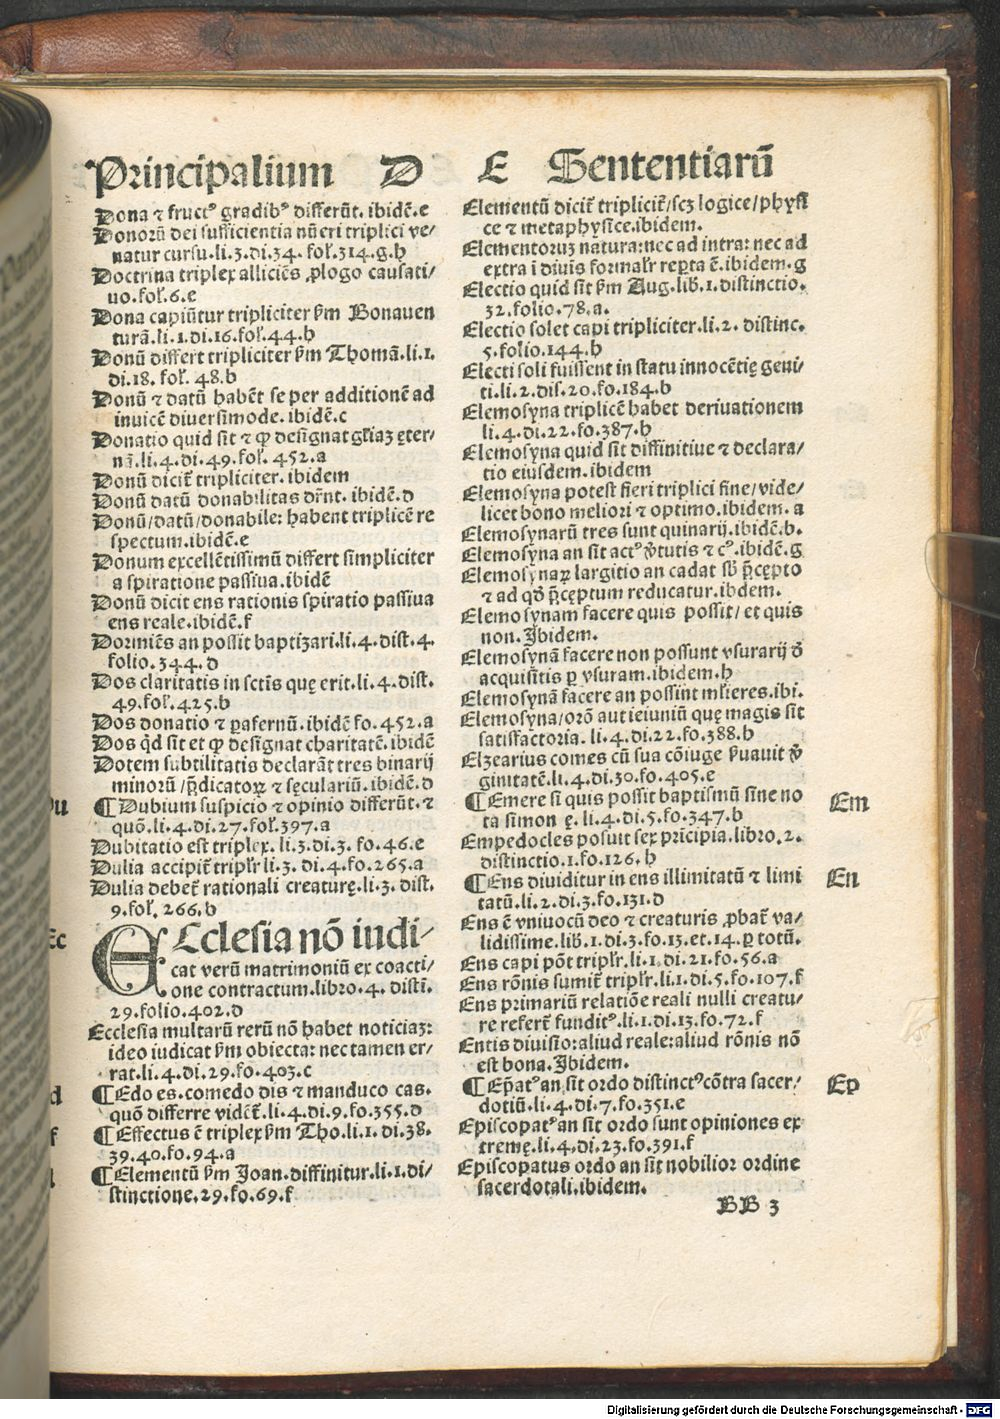 Principalium D
Dona ⁊ fruct⁹ gradib⁹ differūt. ibidē.e
Donorū dei sufficientia nūeri triplici ve⸗
natur cursu.li.3.di.34. fol̄.314.g.h
Doctrina triplex alliciēs ꝓlogo causati⸗
uo.fol̄.6.e
Dona capiūtur tripliciter ẜm Bonauen
turā.li.1.di.16.fol̄.44.b
Donū differt tripliciter ẜm Thomā.li.1.
di.18. fol̄. 48.b
Donū ⁊ datū habēt se per additionē ad
inuicē diuersimode. ibidē.c
Donatio quid sit ⁊ ꝙ designat gr̄iaꝫ ęter⸗
nā.li.4.di.49.fol̄. 452.a
Donū dicit̄ tripliciter. ibidem
Donū datū donabilitas dr̄nt. ibidē.d
Donū/datū/donabile: habent triplicē re
spectum.ibidē.e
Donum excellētissimū differt simpliciter
a spiratione passiua.ibidē
Donū dicit ens rationis spiratio passiua
ens reale.ibidē.f
Dormiēs an possit baptizari.li.4.dist.4.
folio.344.d
Dos claritatis in sctīs quę erit.li.4.dist.
49.fol̄.425.b
Dos donatio ⁊ ꝑafernū.ibidē fo.452.a
Dos qd̄ sit et ꝙ designat charitatē.ibidē
Dotem subtilitatis declarāt tres binarij
minorū/p̄dicatoꝝ ⁊ sęculariū.ibidē.d
Du
¶Dubium suspicio ⁊ opinio differūt.⁊
quō.li.4.di.27.fol̄.397.a
Dubitatio est triplex. li.3.di.3. fo.46.e
Dulia accipit̄ triplr̄ li.3. di.4.fo.265.a
Dulia debet̄ rationali creaturę.li.3. dist.
9.fol̄. 266.b
Ec
ECclesia nō iudi⸗
cat verū matrimoniū ex coacti⸗
one contractum.libro.4. disti.
29.folio.402.d
Ecclesia multarū rerū nō habet noticiaꝫ:
ideo iudicat ẜm obiecta: nec tamen er⸗
rat.li.4.di.29.fo.403.c
d
¶Edo es.comedo dis ⁊ manduco cas.
quō differre vidēt̄.li.4.di.9.fo.355.d
f
¶Effectus ē triplex ẜm Tho.li.1. di.38.
39.40.fo.94.a
l
¶Elementū ẜm Joan.diffinitur.li.1.di⸗
stinctione.29.fo.69.f
E Sententiarū
Elementū dicit̄ triplicit̄/scꝫ logice/physi
ce ⁊ metaphysice.ibidem.
Elementoruꝫ natura:nec ad intra: nec ad
extra ī diuis formalr̄ repta ē.ibidem.g
Electio quid sit ẜm Aug.lib̄.1.distinctio.
32.folio.78.a.
Electio solet capi tripliciter.li.2. distinc.
5.folio.144.b
Electi soli fuissent in statu innocētię geni⸗
ti.li.2.dis.20.fo.184.b
Elemosyna triplicē habet deriuationem
li.4.di.22.fo.387.b
Elemosyna quid sit diffinitiue ⁊ declara⸗
tio eiusdem.ibidem
Elemosyna potest fieri triplici fine/vide⸗
licet bono meliori ⁊ optimo.ibidem. a
Elemosynarū tres sunt quinarij.ibidē.b.
Elemosyna an sit act⁹ v̓tutis ⁊ c⁹.ibidē.g
Elemosynaꝝ largitio an cadat sb̄ p̄cępto
⁊ ad qd̄ p̄cęptum reducatur.ibdem.
Elemosynam facere quis possit/ et quis
non. Ibidem.
Elemosynā facere non possunt vsurarij d̓
acquisitis ꝑ vsuram.ibidem.h
Elemosynā facere an possint ml̄ieres.ibi.
Elemosyna/orō aut ieiuniū quę magis sit
satisfactoria. li.4.di.22.fo.388.b
Elzearius comes cū sua cōiuge ẜuauit v̓
ginitatē.li.4.di.30.fo.405.e
¶Emere si quis possit baptismū sine no Em
ta simon ę.li.4.di.5.fo.347.b
Empedocles posuit sex pricipia.libro.2.
distinctio.1.fo.126.h
¶Ens diuiditur in ens illimitatū ⁊ limi En
tatū.li.2.di.3.fo.131.d
Ens ē vniuocū deo ⁊ creaturis ꝓbat̄ va⸗
lidissime.lib̄.1.di.3.fo.13.et.14.ꝑ totū.
Ens capi pōt triplr̄.li.1.di.21.fo.56.a
Ens rōnis sumit̄ triplr̄.li.1.di.5.fo.107.f
Ens primariū relatiōe reali nulli creatu⸗
re refert̄ fundit⁹.li.1.di.13.fo.72.f
Entis diuisio:aliud reale:aliud rōnis nō
est bona.Ibidem.
¶Ep̄at⁹ an sit ordo distinct⁹ cōtra sacer⸗ Ep
dotiū.li.4.di.7.fo.351.e
Episcopat⁹ an sit ordo sunt opiniones ex
tremę.li.4.di.23.fo.391.f
Episcopatus ordo an sit nobilior ordine
sacerdotali.ibidem.
BB 3
Digitalisierung gefördert durch die Deutsche Forschungsgemeinschaft - DFG